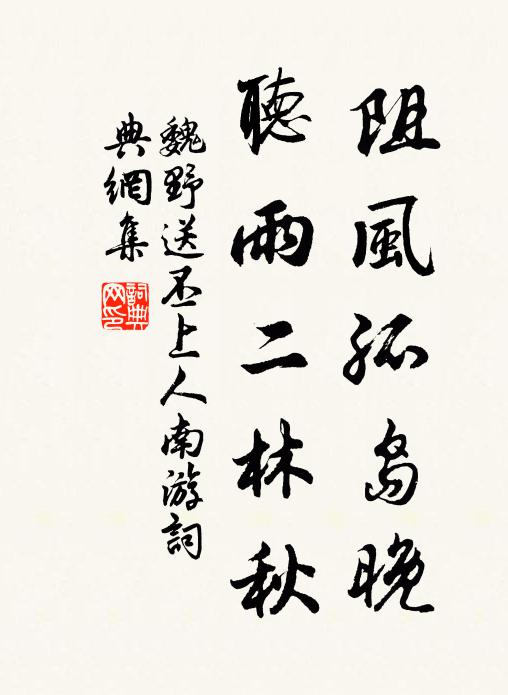 阻風孤島晚
聽雨二林秋
魏野送丕上人南游詞
典網集
詞典網印